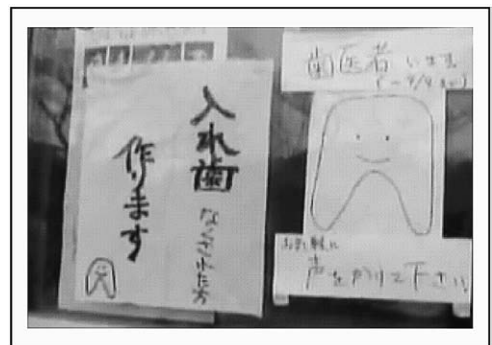 入れ歯なくされた方
作ります
歯医者います
お気軽に
声をかけて下さい